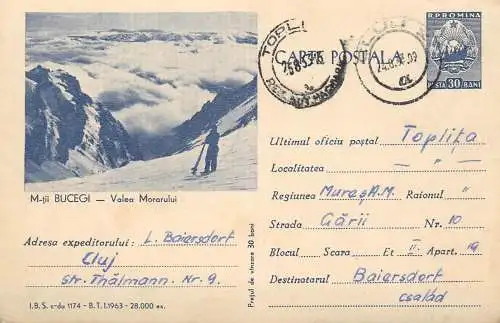 R.P.ROMINA
CARTE POSTALA
POSTA 30 BANI
TOPLI
M-ții BUCEGI — Valea Morarului
Adresa expeditorului: L. Baiersdorf
Cluj
Str. Thälmann. Nr. 9.
I.B.S. c-da 1174 - B. T. 1.1963 - 28.000 ex.
Prețul de vînzare 30 bani
Ultimul oficiu poștal Toplița
Localitatea — " —
Regiunea Mureș A.M. Raionul "
Strada Gării Nr. 10
Blocul Scara Et II. Apart. 19
Destinatarul Baiersdorf
család